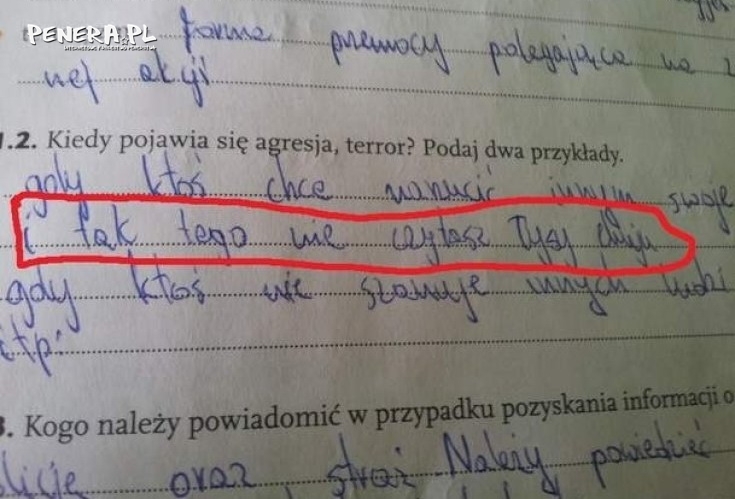 PENERA.PL
forma przemocy polegająca na
nej akcji
1.2. Kiedy pojawia się agresja, terror? Podaj dwa przykłady.
gdy ktoś chce narzucić innym swoje
i tak tego nie czytasz łysy
gdy ktoś nie szanuje innych ludzi
itp.
3. Kogo należy powiadomić w przypadku pozyskania informacji o
oraz straż Należy powiedzieć